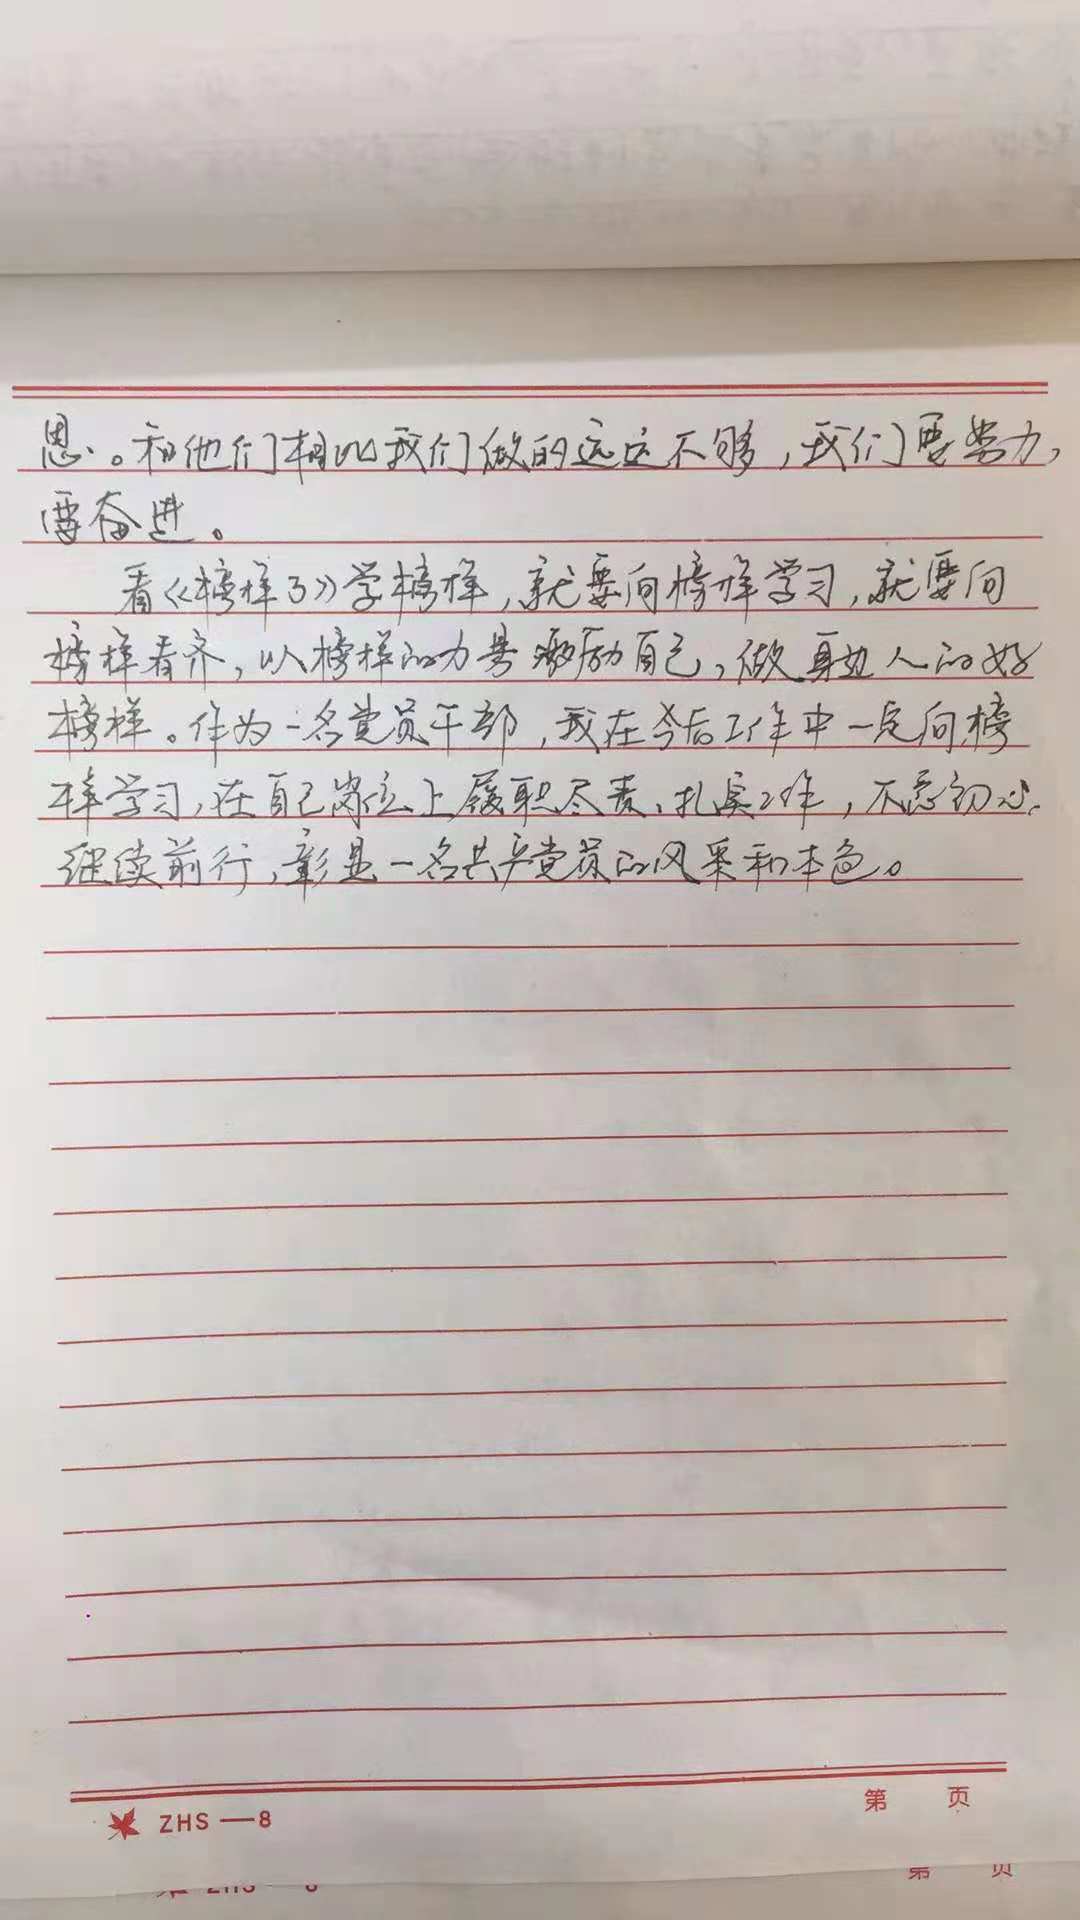 恩。和他们相比我们做的远远不够，我们要努力，
要奋进。
看《榜样3》学榜样，就要向榜样学习，就要向
榜样看齐，以榜样的力量激励自己，做身边人的好
榜样。作为一名党员干部，我在今后工作中一定向榜
样学习，在自己岗位上履职尽责、扎实工作，不忘初心、
继续前行，彰显一名共产党员的风采和本色。
ZHS—8
第 页
第 页